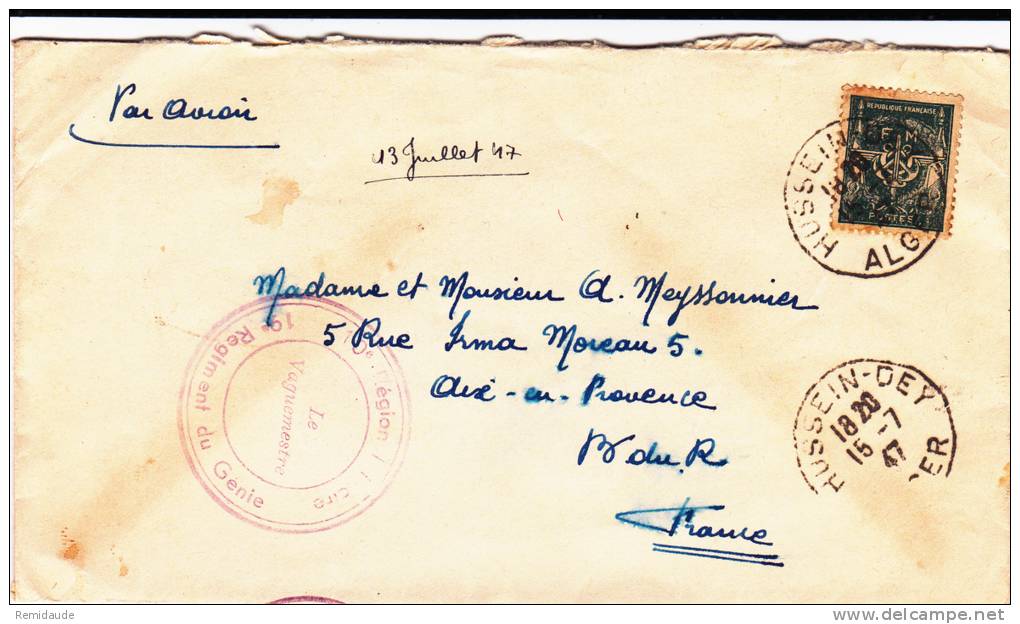 Par Avion
13 Juillet 47
REPUBLIQUE FRANÇAISE
F M
POSTES
HUSSEIN-DEY
18 20
ALG
Madame et Monsieur A. Meyssonnier
5 Rue Irma Moreau 5.
Aix-en-Provence
B du R
France
HUSSEIN-DEY
18 20
15-7
47
GER
Région
19e Régiment du Génie
Le
Vaguemestre
Remidaude
www.delcampe.net